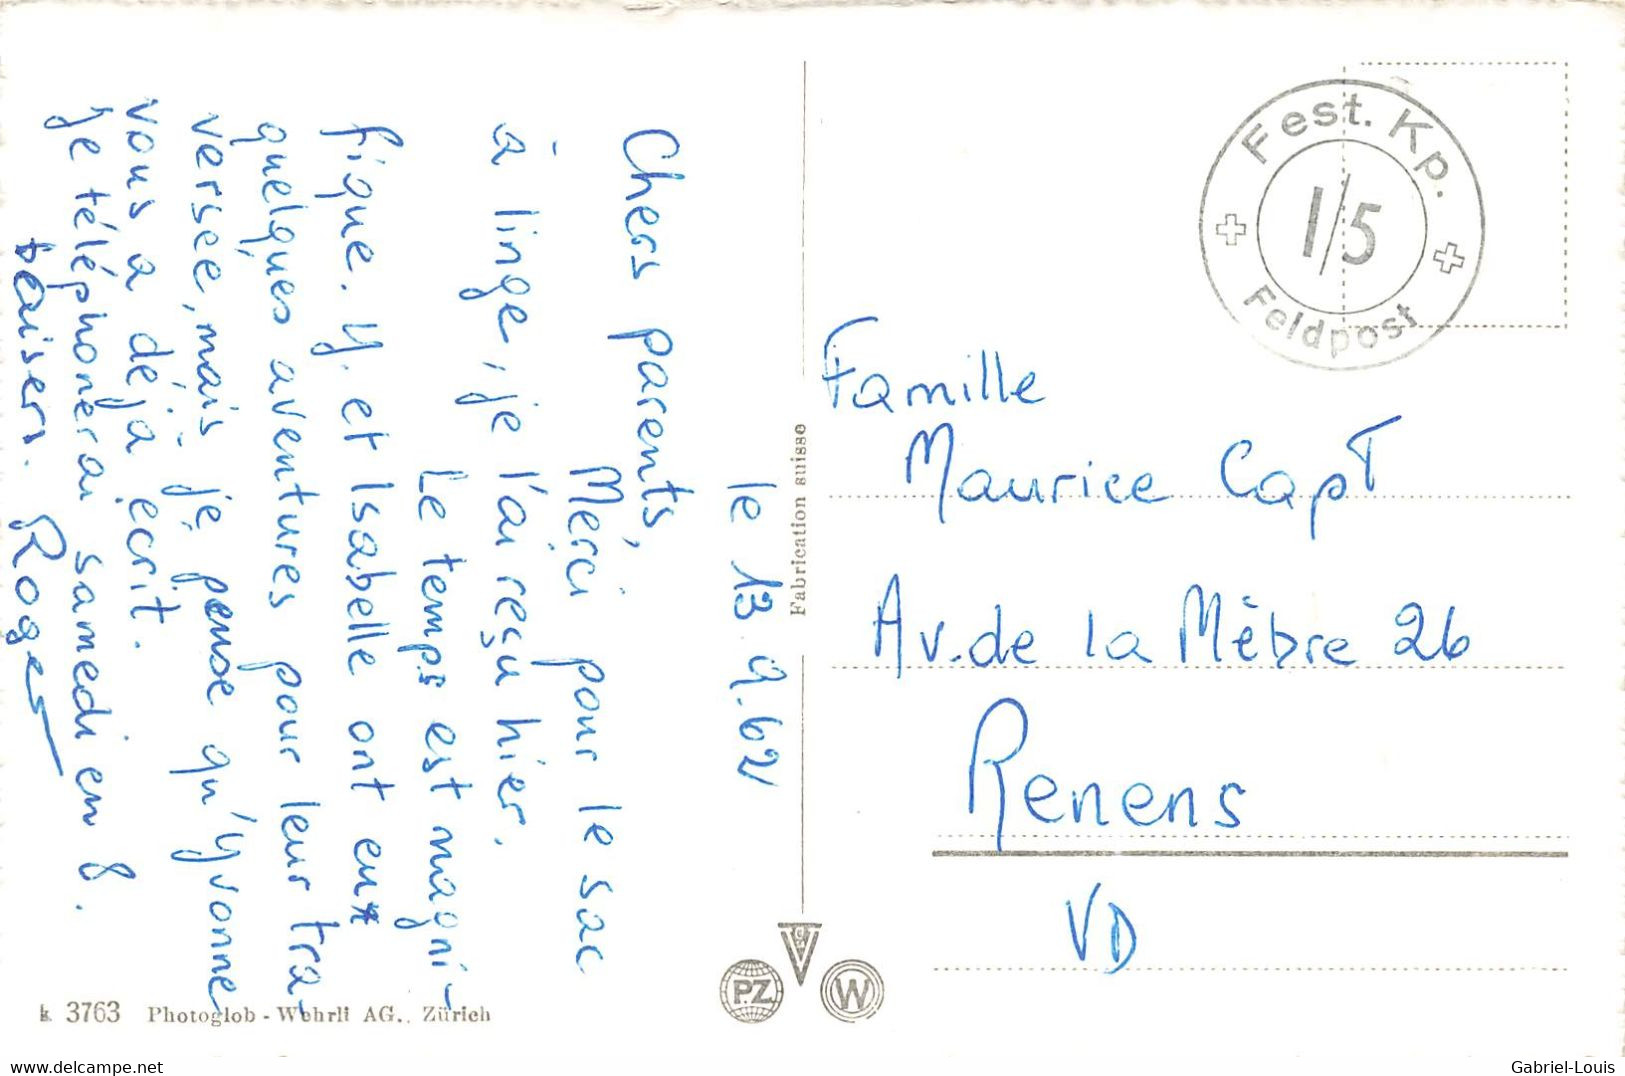 le 13.9.62
Chers parents,
Merci pour le sac
à linge, je l'ai reçu hier.
Le temps est magni-
fique. Y. et Isabelle ont eu
quelques aventures pour leur tra-
versée, mais je pense qu'Yvonne
vous a déjà écrit.
Je téléphonerai samedi en 8.
baisers. Roger
k 3763 Photoglob - Wehrli AG., Zürich
Fabrication suisse
PZ
W
Fest. Kp.
1/5
Feldpost
Famille
Maurice Capt
Av. de la Mèbre 26
Renens
VD
hippostcard.com
Gabriel-Louis